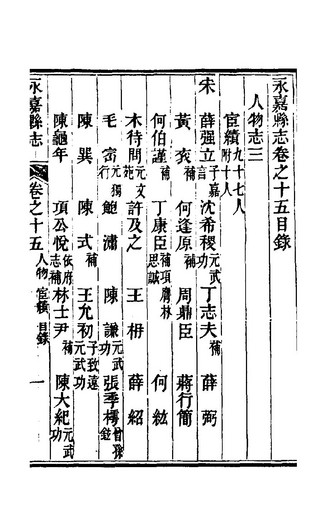 永嘉縣志卷之十五目錄
人物志三
宦績九十七人附十人
宋 薛强立子嘉言 沈希稷元武功 丁志夫補 薛弼
黃友補 何逢原補 周鼎臣 蔣行簡
何伯謹補 丁康臣補項膺思誠 林 何紘
木待問元文苑 許及之 王柟 薛紹
毛宻元獨行 鮑潚 陳謙元武功 張季樗曾孫
陳巽 陳式補 王允初子致遠元武功
陳龜年 項公悅依府志補 林士尹補 陳大紀元武功
永嘉縣志 卷之十五 人物 宦績 目錄 一